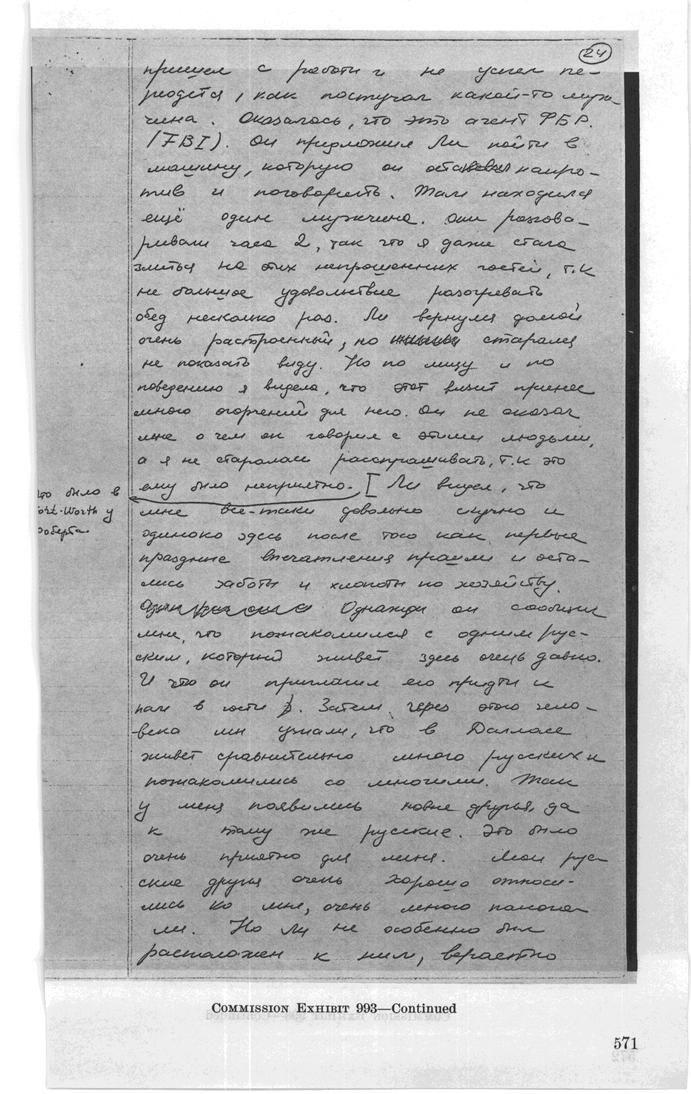 24
пришел с работы и не успел пе-
реодется, как постучал какой-то муж-
чина. Оказалось, что это агент ФБР.
(FBI). Он предложил Ли пойти в
машину, которую он оставил напро-
тив и поговорить. Там находился
ещё один мужчина. Они разгова-
ривали часа 2, так что я даже стала
злиться на этих непрошенных гостей, т.к
не большое удовольствие разогревать
обед несколько раз. Ли вернулся домой
очень растроенный, но старался
не показать виду. Но по лицу и по
поведению я видела, что этот визит принес
много огорчений для него. Он не сказал
мне о чем он говорил с этими людьми,
а я не старалась расспрашивать, т.к это
ему было неприятно. [ Ли видел, что
это было в
Fort-Worth у
Роберта.
мне все-таки довольно скучно и
одиноко здесь после того как первые
праздные впечатления прошли и оста-
лись заботы и хлопоты по хозяйству.
Однажды он сообщил
мне, что познакомился с одним рус-
ским, который живет здесь очень давно.
И что он пригласил его придти к
нам в гости. Затем через этого чело-
-века мы узнали, что в Далласе
живет сравнительно много русских и
познакомились со многими. Так
у меня появились новые друзья, да
к тому же русские. Это было
очень приятно для меня. Мои рус-
ские друзья очень хорошо относи-
лись ко мне, очень много помога-
ли. Но Ли не особенно был
расположен к ним, вероятно
COMMISSION EXHIBIT 993—Continued
571